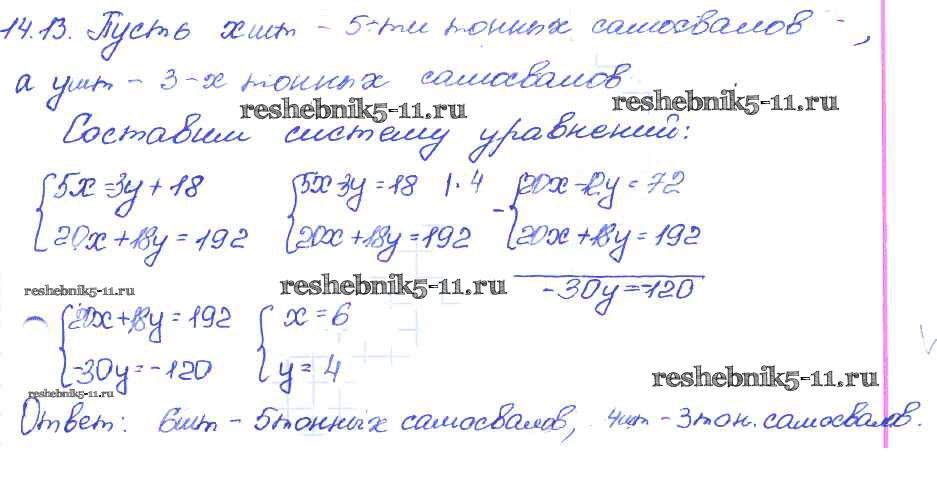 14.13. Пусть x шт - 5-ти тонных самосвалов,
а y шт - 3-х тонных самосвалов
reshebnik5-11.ru reshebnik5-11.ru
Составим систему уравнений:
5x = 3y + 18 5x - 3y = 18 | · 4 20x - 12y = 72
20x + 18y = 192 20x + 18y = 192 - 20x + 18y = 192
reshebnik5-11.ru reshebnik5-11.ru -30y = -120
20x + 18y = 192 x = 6
-30y = -120 y = 4
reshebnik5-11.ru reshebnik5-11.ru
Ответ: 6шт - 5тонных самосвалов, 4шт - 3тон. самосвалов.